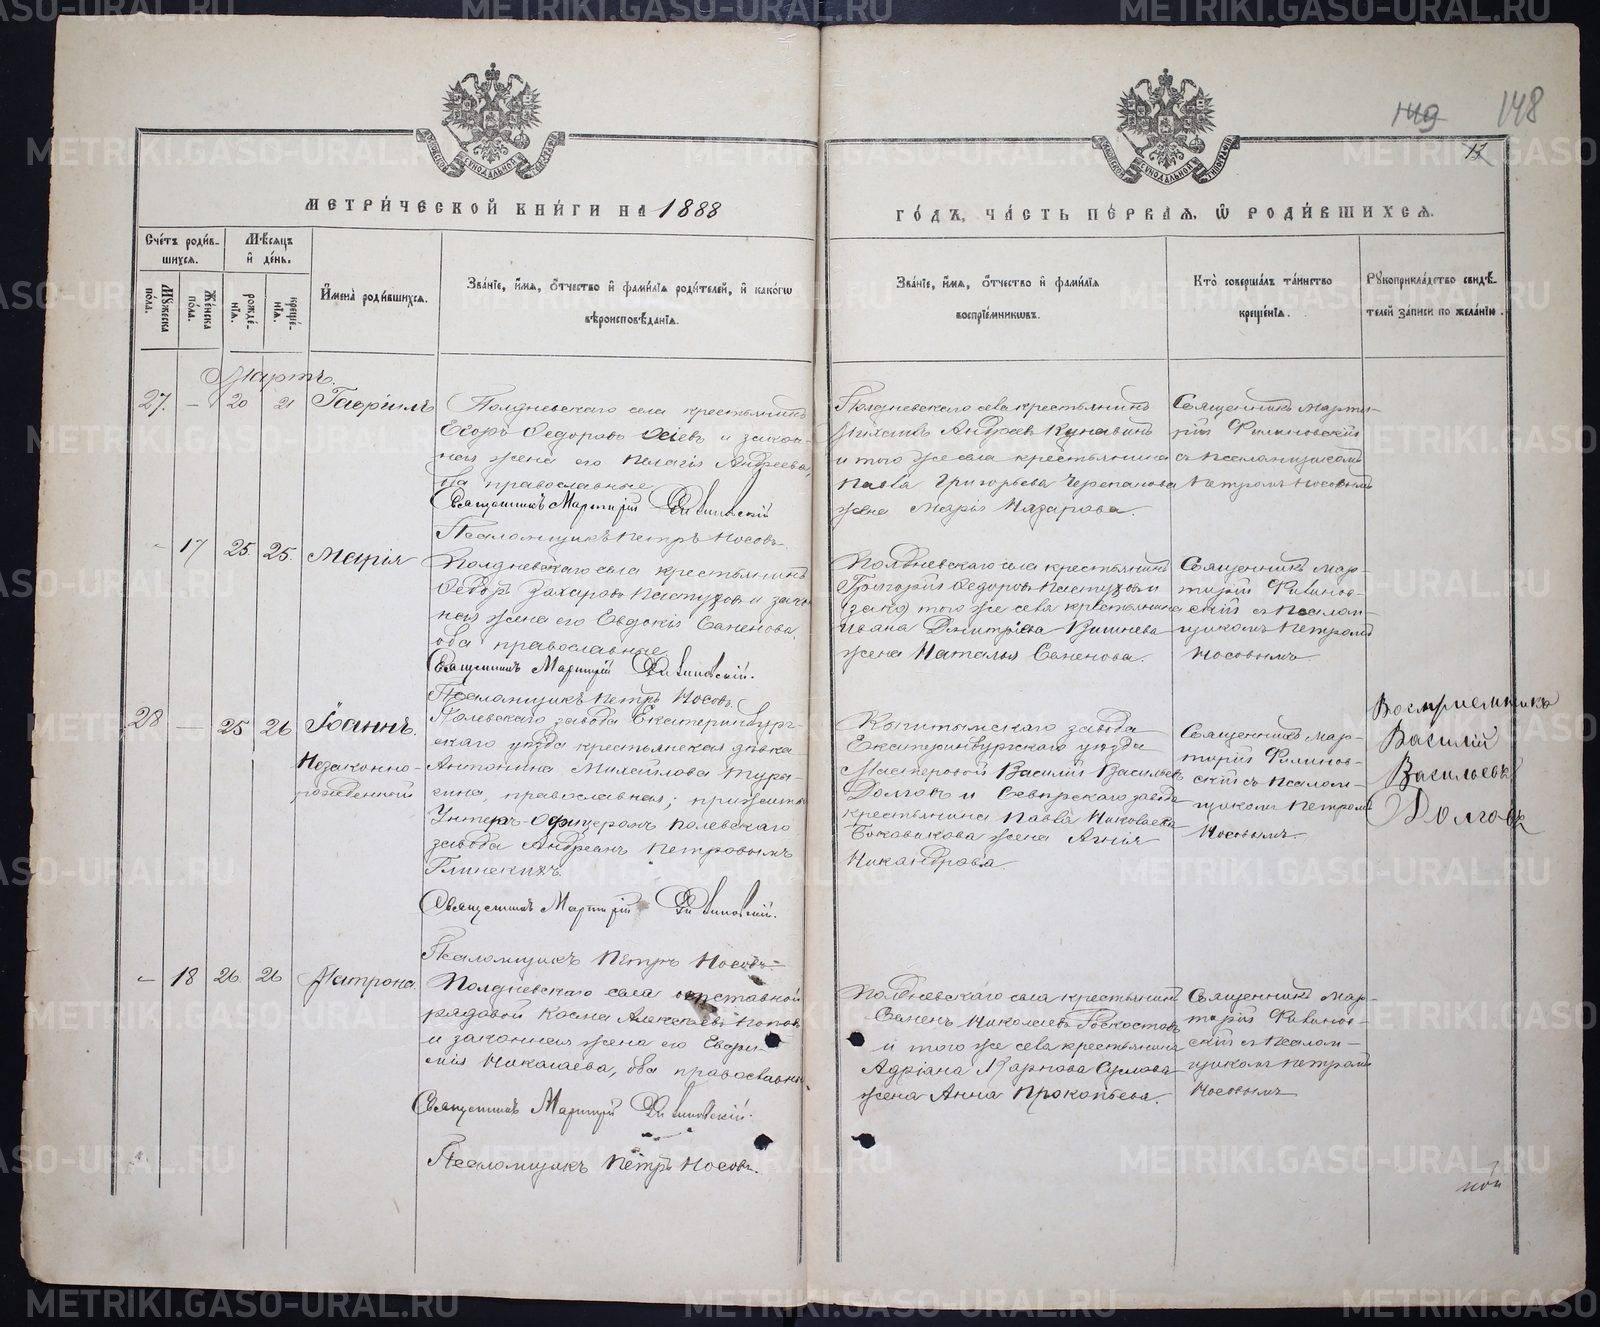 149 148
13
МЕТРИ́ЧЕСКОЙ КНИ́ГИ НА 1888
ГО́ДЪ, ЧА́СТЬ ПЕ́РВАЯ, Ѡ РОДИ́ВШИХСЯ.
Сче́тъ роди́в-
шихся.
Му́жеска
по́ла.
Же́нска
по́ла.
Мѣ́сяцъ
и де́нь.
рожде́-
нїя.
креще́-
нїя.
Имена̀ роди́вшихся.
Зва́нїе, и́мя, о́тчество и фами́лїя роди́телей, и како́гѡ
вѣроисповѣ́данїя.
Зва́нїе, и́мя, о́тчество и фами́лїя
воспрїе́мниковъ.
Кто̀ соверша́лъ та́инство
креще́нїя.
Рукоприкла́дство свидѣ́-
телей за́писи по жела́нїю.
Мартъ.
27. — 20 21 Гавріилъ
Полдневскаго села крестьянинъ
Егоръ Ѳедоровъ и закон-
ная жена его Пелагія Андреева,
оба православные
Священникъ Мартирій Филиновскій
Псаломщикъ Петръ Носовъ.
Полдневскаго села крестьянинъ
Михаилъ Андреевъ Кунавинъ
и того же села крестьянина
Павла Григорьева Черепанова
жена Марія Назарова.
Священникъ Марти-
рій Филиновскій
съ псаломщикомъ
Петромъ Носовымъ
— 17 25. 25. Марія
Полдневскаго села крестьянинъ
Ѳедоръ Захаровъ Пастуховъ и закон-
ная жена его Евдокія Семенова,
оба православные
Священникъ Мартирій Филиновскій.
Псаломщикъ Петръ Носовъ.
Полдневскаго села крестьянинъ
Григорій Ѳедоровъ Пастуховъ и
того же села крестьянина
Ивана Дмитріева Вишнева
жена Наталья Семенова.
Священникъ Мар-
тирій Филинов-
скій съ псалом-
щикомъ Петромъ
Носовымъ
28 — 25 26 Іоаннъ.
Незаконно-
рожденный
Полевскаго завода Екатеринбург-
скаго уѣзда крестьянская дѣвка
Антонина Михайлова
православная; прижитъ
Унтеръ-Офицеромъ Полевскаго
завода Андреемъ Петровымъ
Глинскихъ.
Священникъ Мартирій Филиновскій.
Псаломщикъ Петръ Носовъ.
завода
Екатеринбургскаго уѣзда
Мастеровой Василій Васильевъ
Долговъ и Сѣверскаго завода
крестьянина Павла Николаева
жена Агнія
Никандрова
Священникъ Мар-
тирій Филинов-
скій съ псалом-
щикомъ Петромъ
Носовымъ.
Воспріемникъ
Василій
Васильевъ
Долговъ
— 18 26. 26 Матрона.
Полдневскаго села отставной
рядовой Косма Алексѣевъ Поповъ
и законная жена его Евѳи-
мія Николаева, оба православные
Священникъ Мартирій Филиновскій.
Псаломщикъ Петръ Носовъ.
Полдневскаго села крестьянинъ
Семенъ Николаевъ
и того же села крестьянина
Адріана Карпова Суслова
жена Анна Прокопьева.
Священникъ Мар-
тирій Филинов-
скій съ псалом-
щикомъ Петромъ
Носовымъ
METRIKI.GASO-URAL.RU